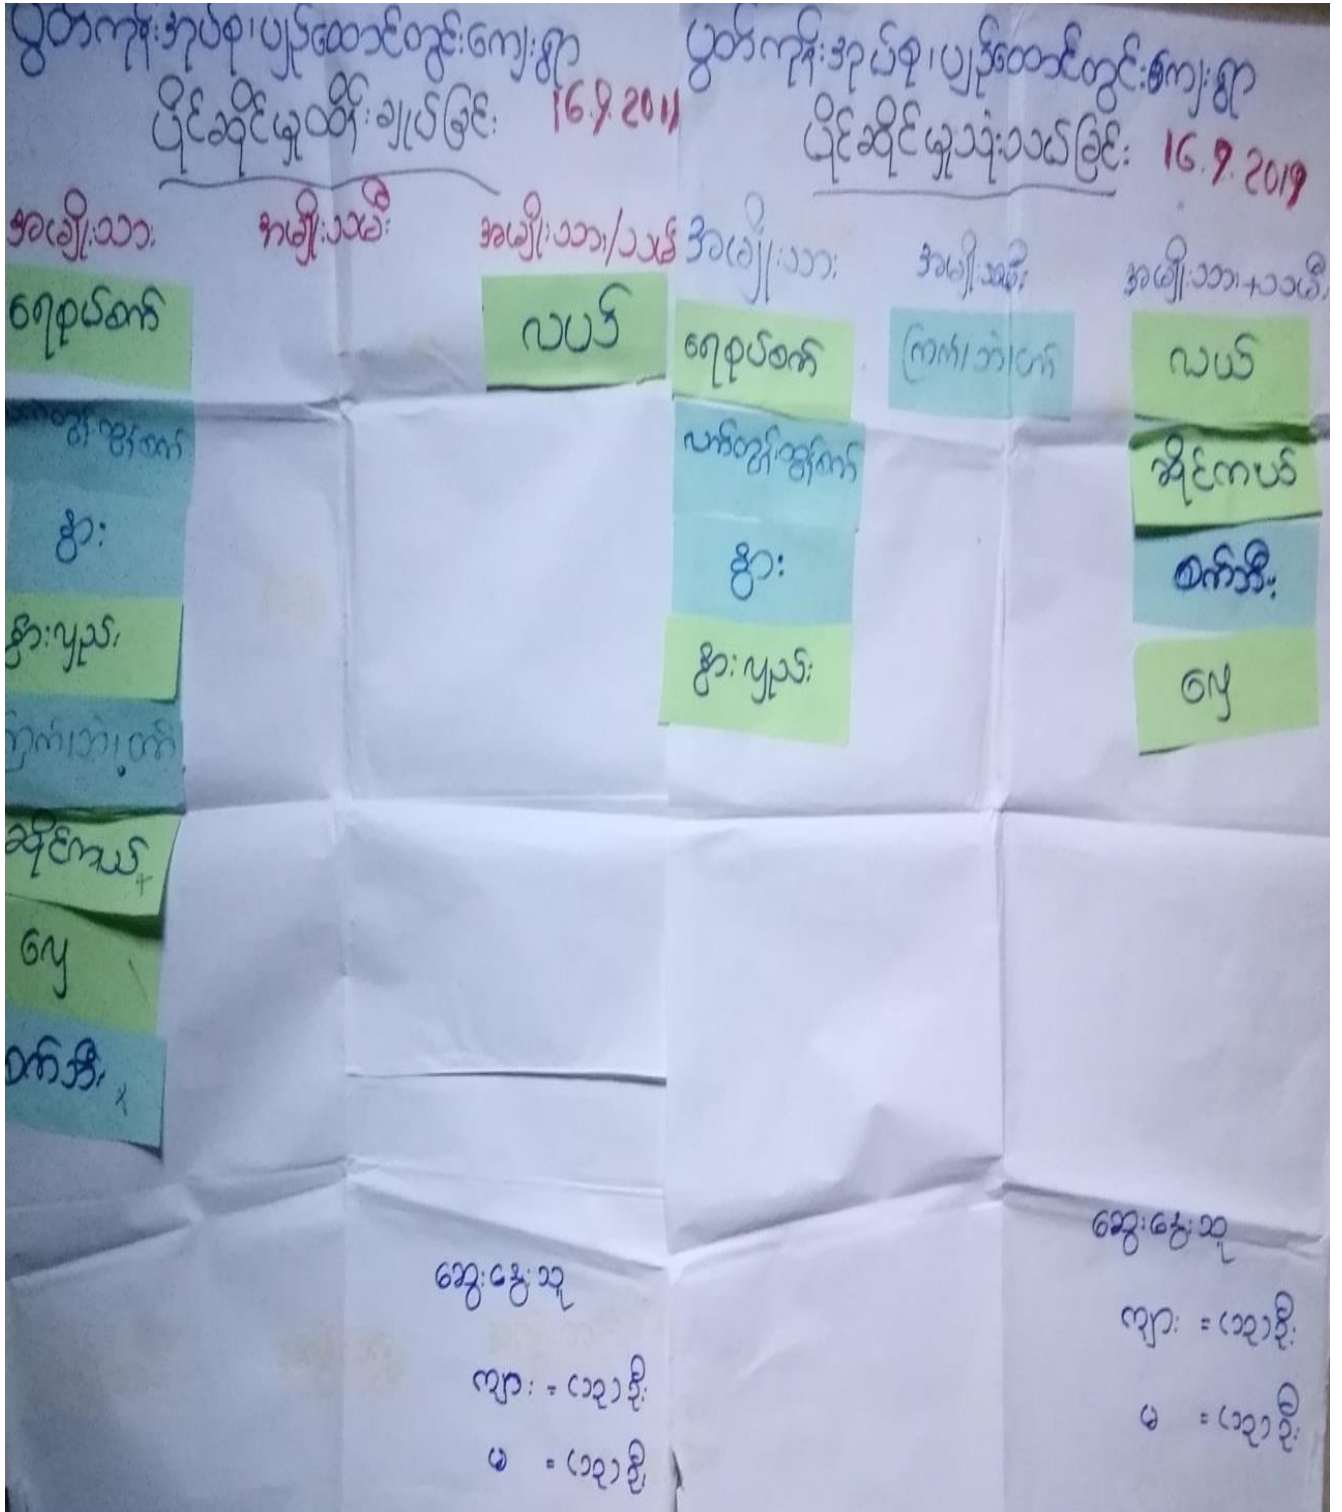 ပွတ်ကုန်းအုပ်စု၊ ပျဉ်ထောင်တွင်းကျေးရွာ
ပိုင်ဆိုင်မှုထိန်းချုပ်ခြင်း 16.9.2019
အမျိုးသား အမျိုးသမီး အမျိုးသား/သမီး
ရေစုပ်စက် လယ်
လက်တွန်းထွန်စက်
နွား
နွားလှည်း
ကြက်၊ဘဲ၊ဝက်
ဆိုင်ကယ်
လှေ
စက်ဘီး
ဆွေးနွေးသူ
ကျား = (၁၃) ဦး
မ = (၁၃) ဦး
ပွတ်ကုန်းအုပ်စု၊ ပျဉ်ထောင်တွင်းကျေးရွာ
ပိုင်ဆိုင်မှုသုံးသပ်ခြင်း 16.9.2019
အမျိုးသား အမျိုးသမီး အမျိုးသား+သမီး
ရေစုပ်စက် ကြက်၊ဘဲ၊ဝက် လယ်
လက်တွန်းထွန်စက် ဆိုင်ကယ်
နွား စက်ဘီး
နွားလှည်း လှေ
ဆွေးနွေးသူ
ကျား = (၁၃) ဦး
မ = (၁၃) ဦး